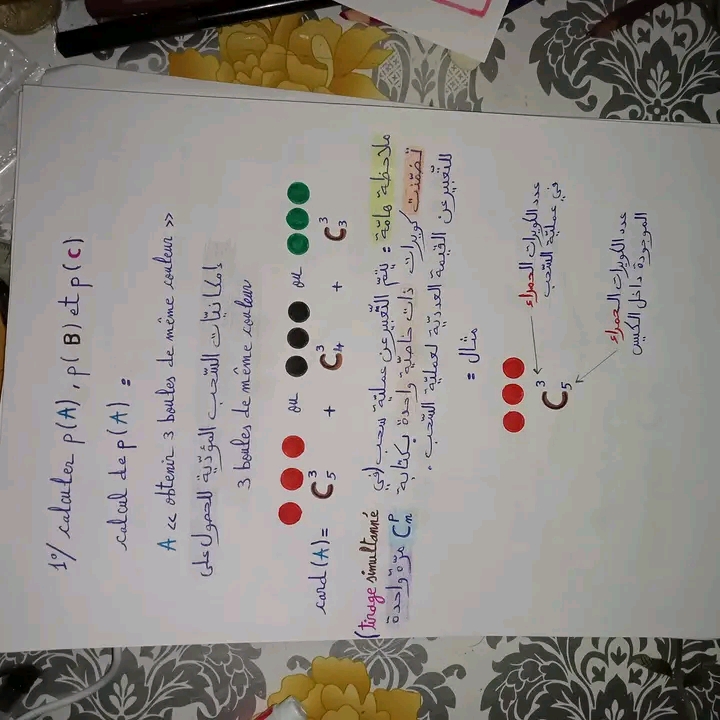 1°/ calculer p(A), p(B) et p(C)
calcul de p(A) :
A << obtenir 3 boules de même couleur >>
امكانيات السّحب المؤدّية للحصول على
3 boules de même couleur
ou ou
card(A) = C³₅ + C³₄ + C³₃
ملاحظة هامّة : يتمّ التّعبير عن عملية سحب (في
(tirage simultanné
تضمّنت كويرات ذات خاصّية واحدة بكتابة
Cᵖₙ مرّة واحدة
للتّعبير عن القيمة العدديّة لعمليّة السّحب .
مثال :
C³₅
عدد الكويرات الحمراء
في عمليّة السّحب
عدد الكويرات الحمراء
الموجودة داخل الكيس